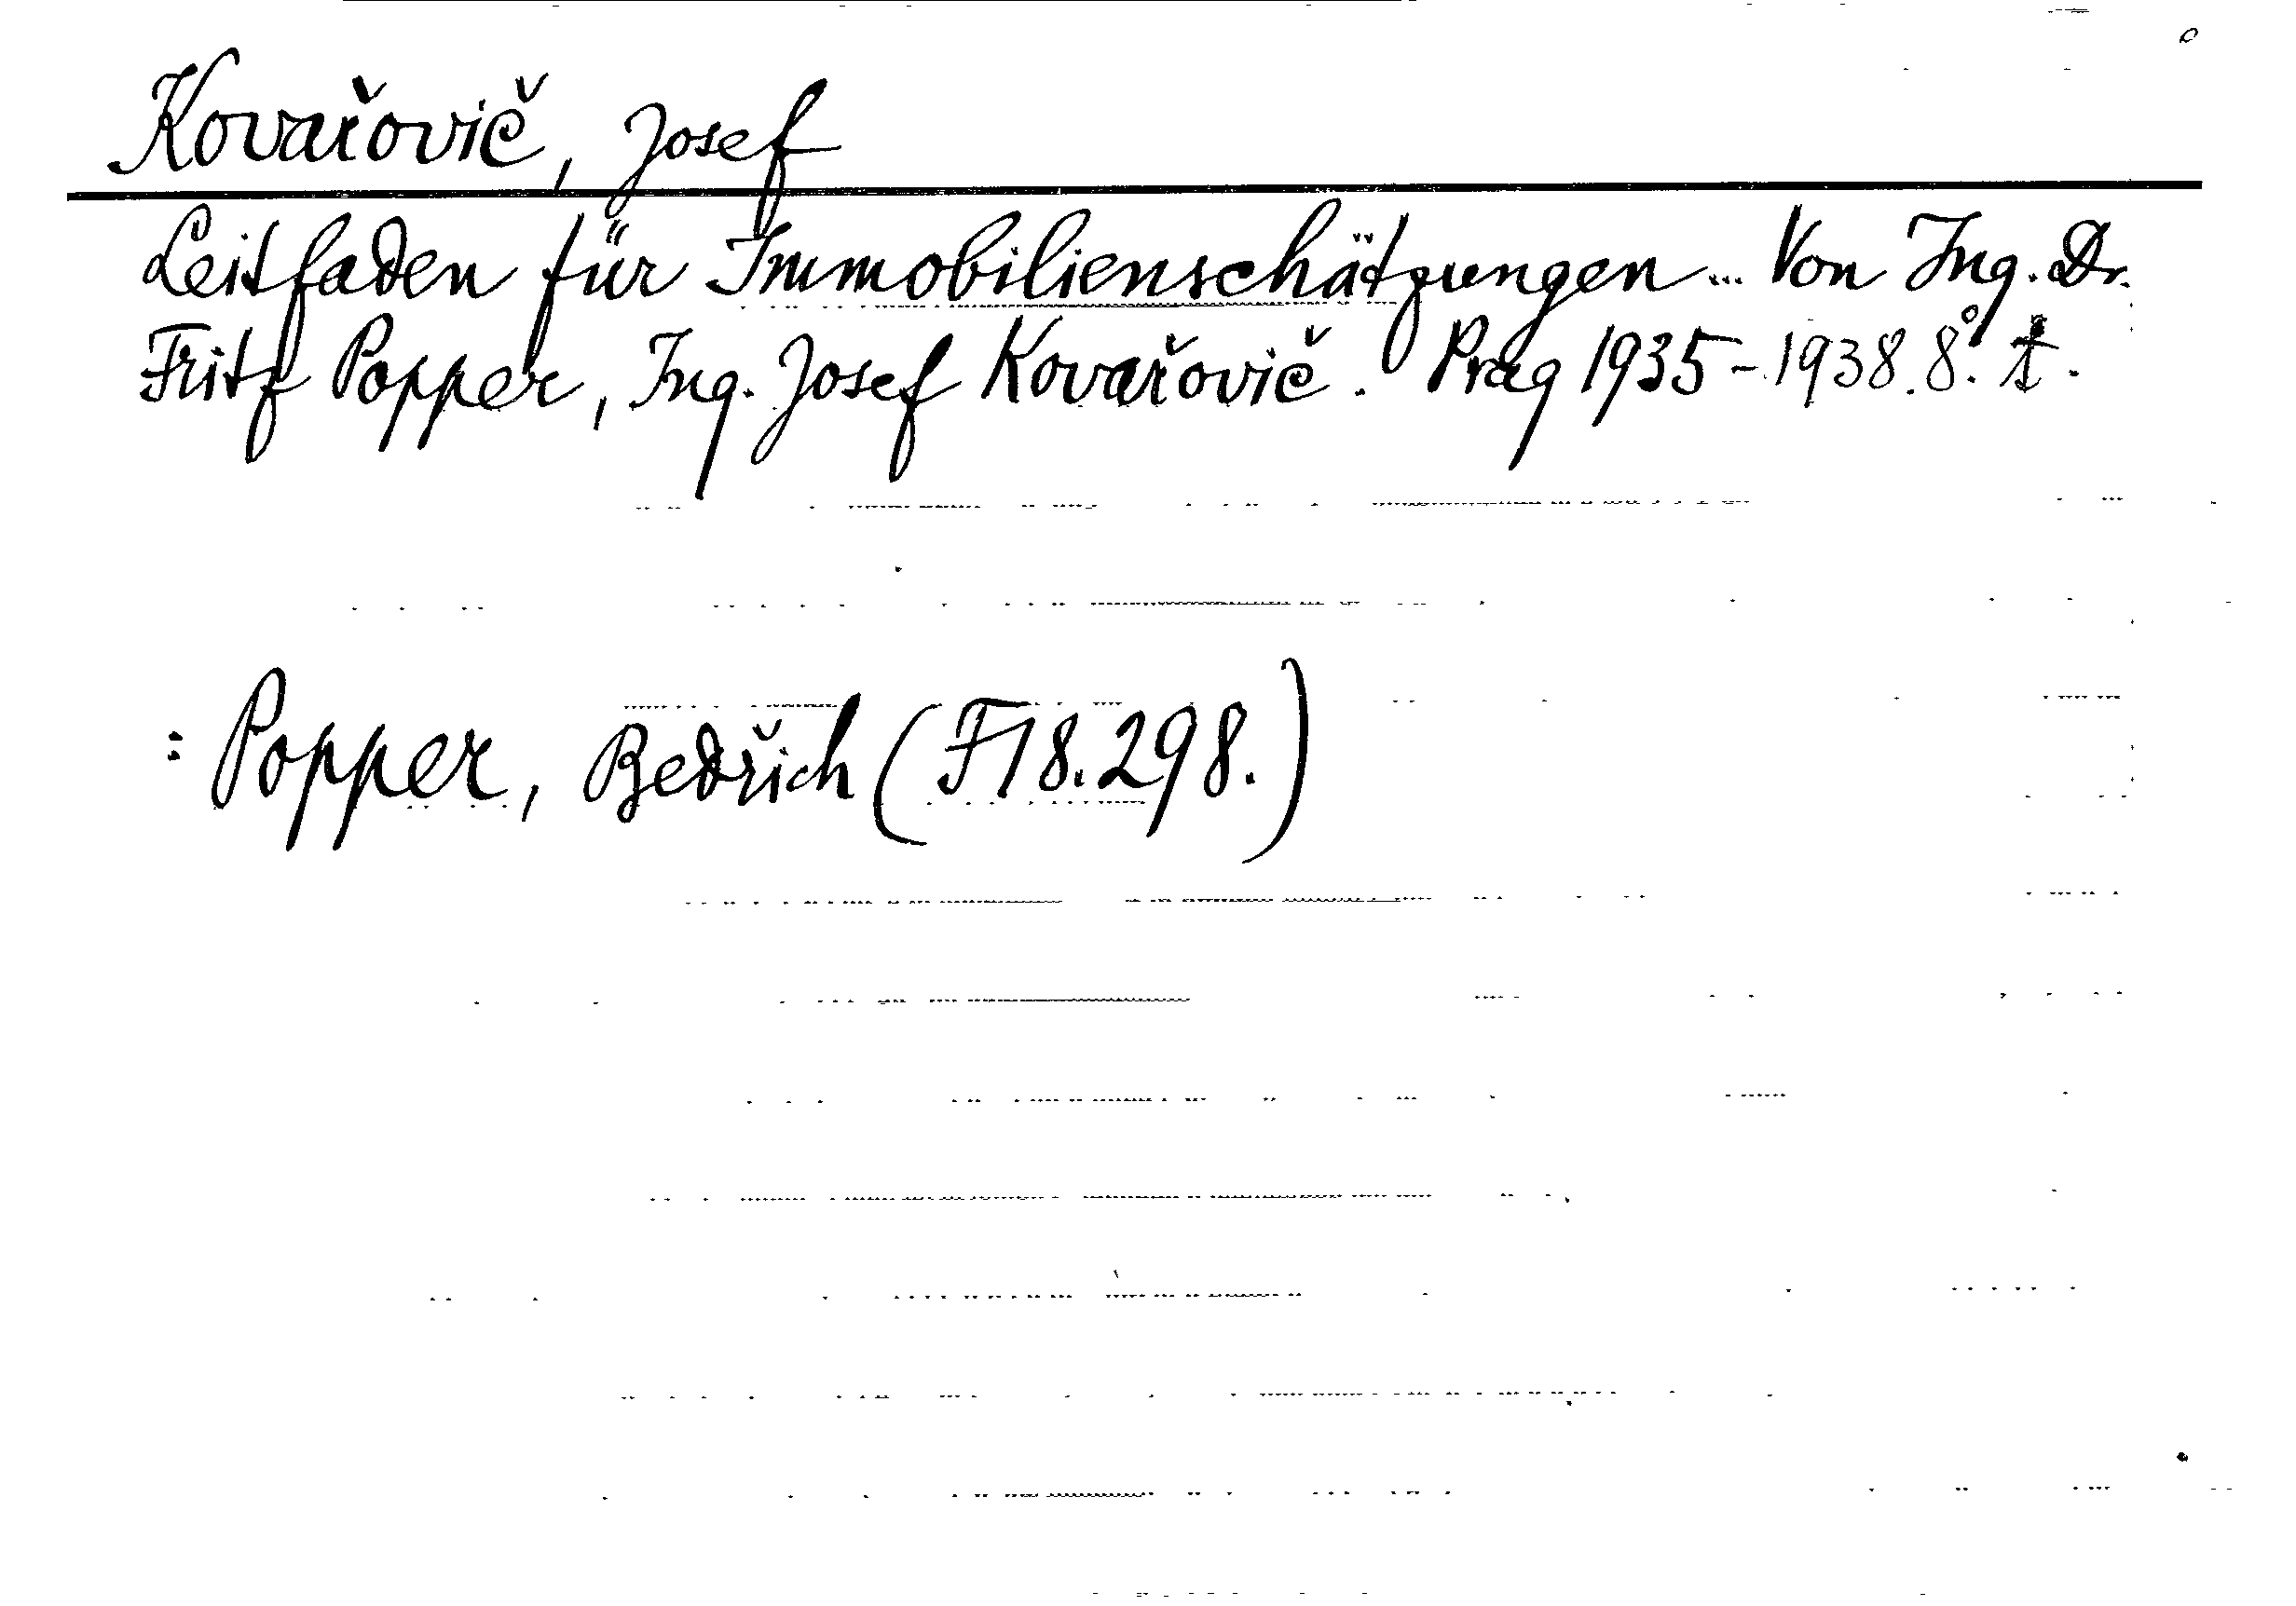 Kovařovič, Josef
Leitfaden für Immobilienschätzungen... Von Ing. Dr.
Fritz Popper, Ing. Josef Kovařovič. Prag 1935-1938. 8°.
: Popper, Bedřich (F18.298.)